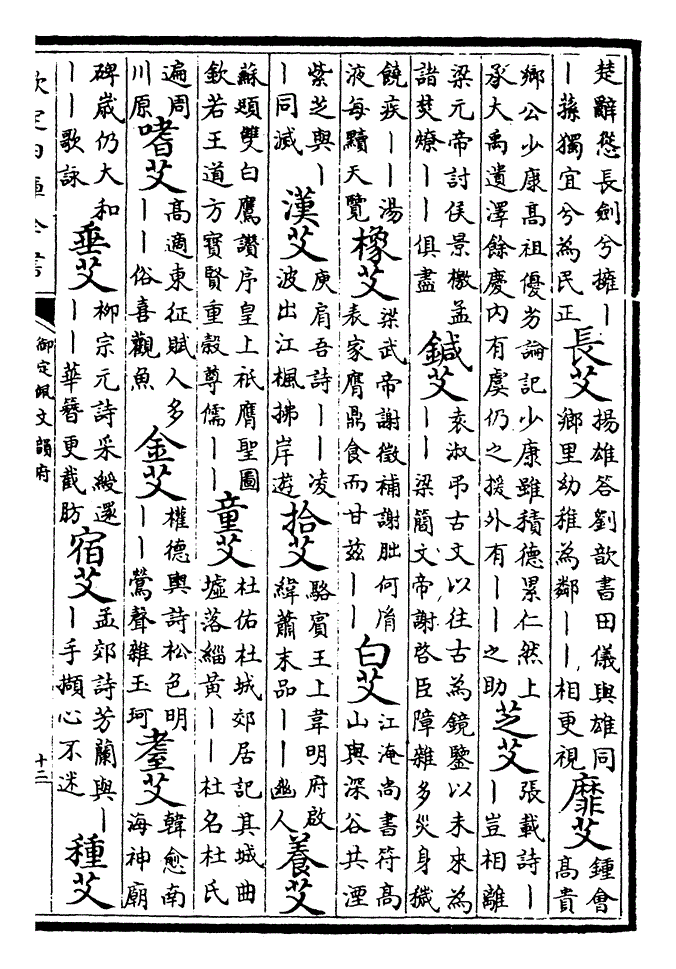 楚辭慫長劍兮擁｜
｜蓀獨宜兮為民正
長艾
揚雄答劉歆書田儀與雄同
鄉里幼稚為鄰｜｜相更視
靡艾
鍾會
高貴
鄉公少康高祖優劣論記少康雖積德累仁然上
承大禹遺澤餘慶内有虞仍之援外有｜｜之助
芝艾
張載詩｜
｜豈相離
梁元帝討侯景檄孟
諸焚燎｜｜俱盡
鍼艾
袁淑弔古文以往古為鏡鑒以未來為
｜｜梁簡文帝謝啓臣障雜多災身穢
饒疾｜｜湯
液每黷天覽
橡艾
梁武帝謝徵補謝朏何㣧
表家膺鼎食而甘兹｜｜
白艾
江淹尚書符高
山與深谷共湮
紫芝與｜
｜同滅
漢艾
庾肩吾詩｜｜凌
波出江楓拂岸遊
拾艾
駱賓王上韋明府啟
緯蕭末品｜｜幽人
養艾
蘇頲雙白鷹讚序皇上祇膺聖圖
欽若王道方寳賢重穀尊儒｜｜
童艾
杜佑杜城郊居記其城曲
墟落緇黄｜｜杜名杜氏
遍周
川原
嗜艾
高適東征賦人多
｜｜俗喜觀魚
金艾
權德輿詩松色明
｜｜鶯聲雜玉珂
耋艾
韓愈南
海神廟
碑歲仍大和
｜｜歌詠
垂艾
柳宗元詩采綬還
｜｜華簪更截肪
宿艾
孟郊詩芳蘭與｜
｜手擷心不迷
種艾
欽定四庫全書
御定佩文韻府
十三